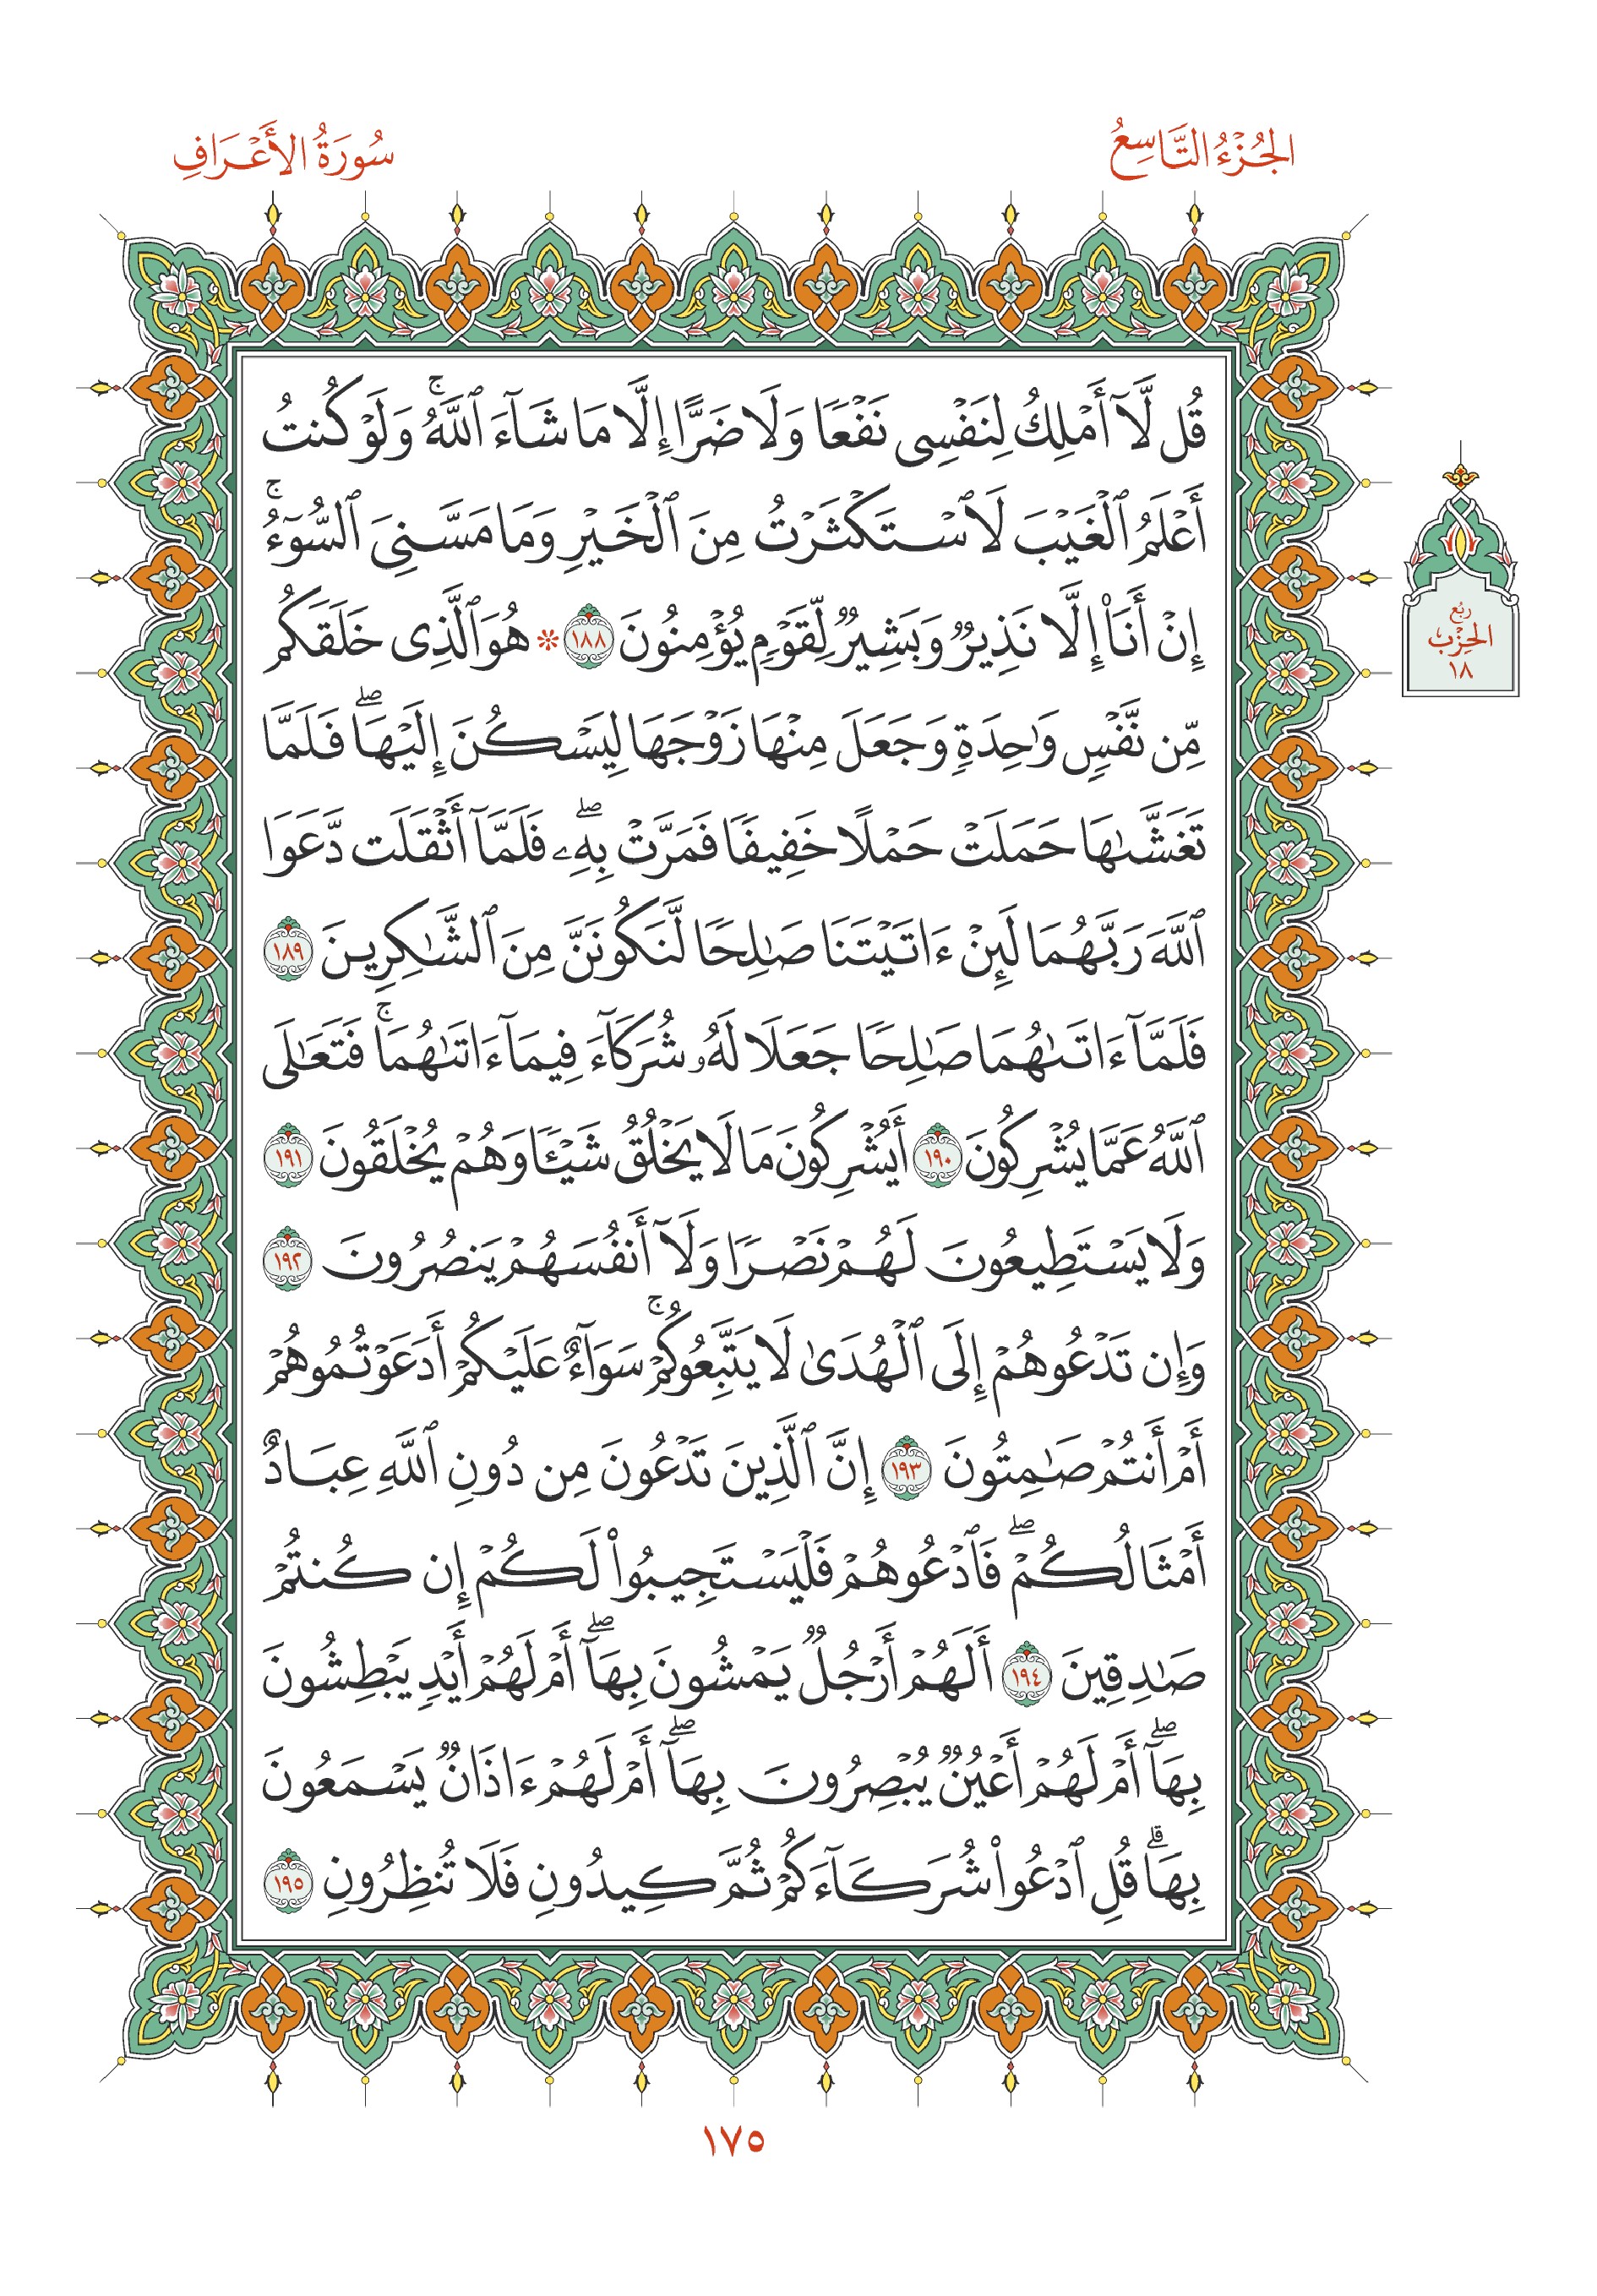 الجُزْءُ التَّاسِعُ
سُورَةُ الأَعْرَافِ
قُل لَّآ أَمْلِكُ لِنَفْسِى نَفْعًا وَلَا ضَرًّا إِلَّا مَا شَآءَ ٱللَّهُ ۚ وَلَوْ كُنتُ
أَعْلَمُ ٱلْغَيْبَ لَٱسْتَكْثَرْتُ مِنَ ٱلْخَيْرِ وَمَا مَسَّنِىَ ٱلسُّوٓءُ ۚ
إِنْ أَنَا۠ إِلَّا نَذِيرٌ وَبَشِيرٌ لِّقَوْمٍ يُؤْمِنُونَ ١٨٨ * هُوَ ٱلَّذِى خَلَقَكُم
مِّن نَّفْسٍ وَٰحِدَةٍ وَجَعَلَ مِنْهَا زَوْجَهَا لِيَسْكُنَ إِلَيْهَا ۖ فَلَمَّا
تَغَشَّىٰهَا حَمَلَتْ حَمْلًا خَفِيفًا فَمَرَّتْ بِهِۦ ۖ فَلَمَّآ أَثْقَلَت دَّعَوَا
ٱللَّهَ رَبَّهُمَا لَئِنْ ءَاتَيْتَنَا صَٰلِحًا لَّنَكُونَنَّ مِنَ ٱلشَّٰكِرِينَ ١٨٩
فَلَمَّآ ءَاتَىٰهُمَا صَٰلِحًا جَعَلَا لَهُۥ شُرَكَآءَ فِيمَآ ءَاتَىٰهُمَا ۚ فَتَعَٰلَى
ٱللَّهُ عَمَّا يُشْرِكُونَ ١٩٠ أَيُشْرِكُونَ مَا لَا يَخْلُقُ شَيْـًٔا وَهُمْ يُخْلَقُونَ ١٩١
وَلَا يَسْتَطِيعُونَ لَهُمْ نَصْرًا وَلَآ أَنفُسَهُمْ يَنصُرُونَ ١٩٢
وَإِن تَدْعُوهُمْ إِلَى ٱلْهُدَىٰ لَا يَتَّبِعُوكُمْ ۚ سَوَآءٌ عَلَيْكُمْ أَدَعَوْتُمُوهُمْ
أَمْ أَنتُمْ صَٰمِتُونَ ١٩٣ إِنَّ ٱلَّذِينَ تَدْعُونَ مِن دُونِ ٱللَّهِ عِبَادٌ
أَمْثَالُكُمْ ۖ فَٱدْعُوهُمْ فَلْيَسْتَجِيبُوا۟ لَكُمْ إِن كُنتُمْ
صَٰدِقِينَ ١٩٤ أَلَهُمْ أَرْجُلٌ يَمْشُونَ بِهَآ ۖ أَمْ لَهُمْ أَيْدٍ يَبْطِشُونَ
بِهَآ ۖ أَمْ لَهُمْ أَعْيُنٌ يُبْصِرُونَ بِهَآ ۖ أَمْ لَهُمْ ءَاذَانٌ يَسْمَعُونَ
بِهَا ۗ قُلِ ٱدْعُوا۟ شُرَكَآءَكُمْ ثُمَّ كِيدُونِ فَلَا تُنظِرُونِ ١٩٥
رُبُع
الحِزْب
١٨
١٧٥